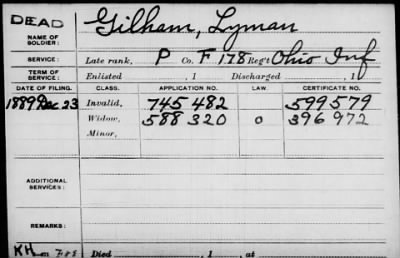 DEAD
NAME OF SOLDIER: Gilham, Lyman
SERVICE: Late rank, P Co. F 178 Reg't Ohio Inf
TERM OF SERVICE: Enlisted , 1 Discharged , 1
DATE OF FILING. CLASS. APPLICATION NO. LAW. CERTIFICATE NO.
1889 Dec 23 Invalid, 745 482 599 579
Widow, 588 320 o 396 972
Minor,
ADDITIONAL SERVICES:
REMARKS:
Died , 1 , at